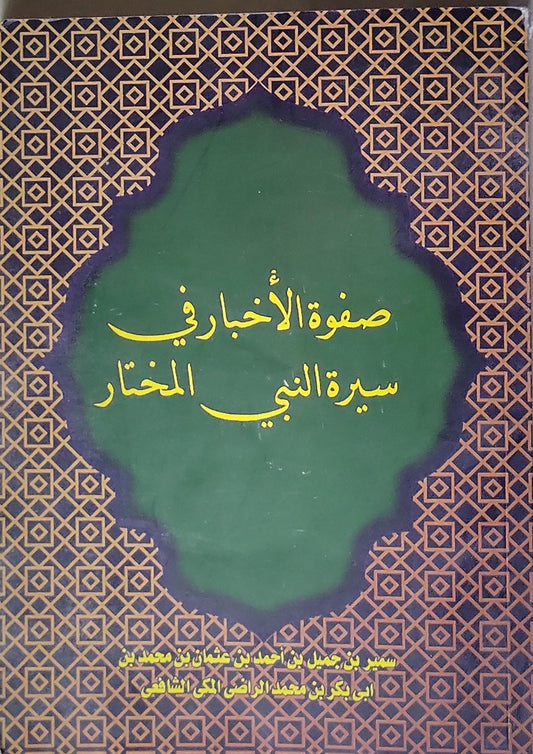 صفوة الأخبار في
سيرة النبي المختار
سمير بن جميل بن أحمد بن عثمان بن محمد بن
ابى بكر بن محمد الراضى المكى الشافعى